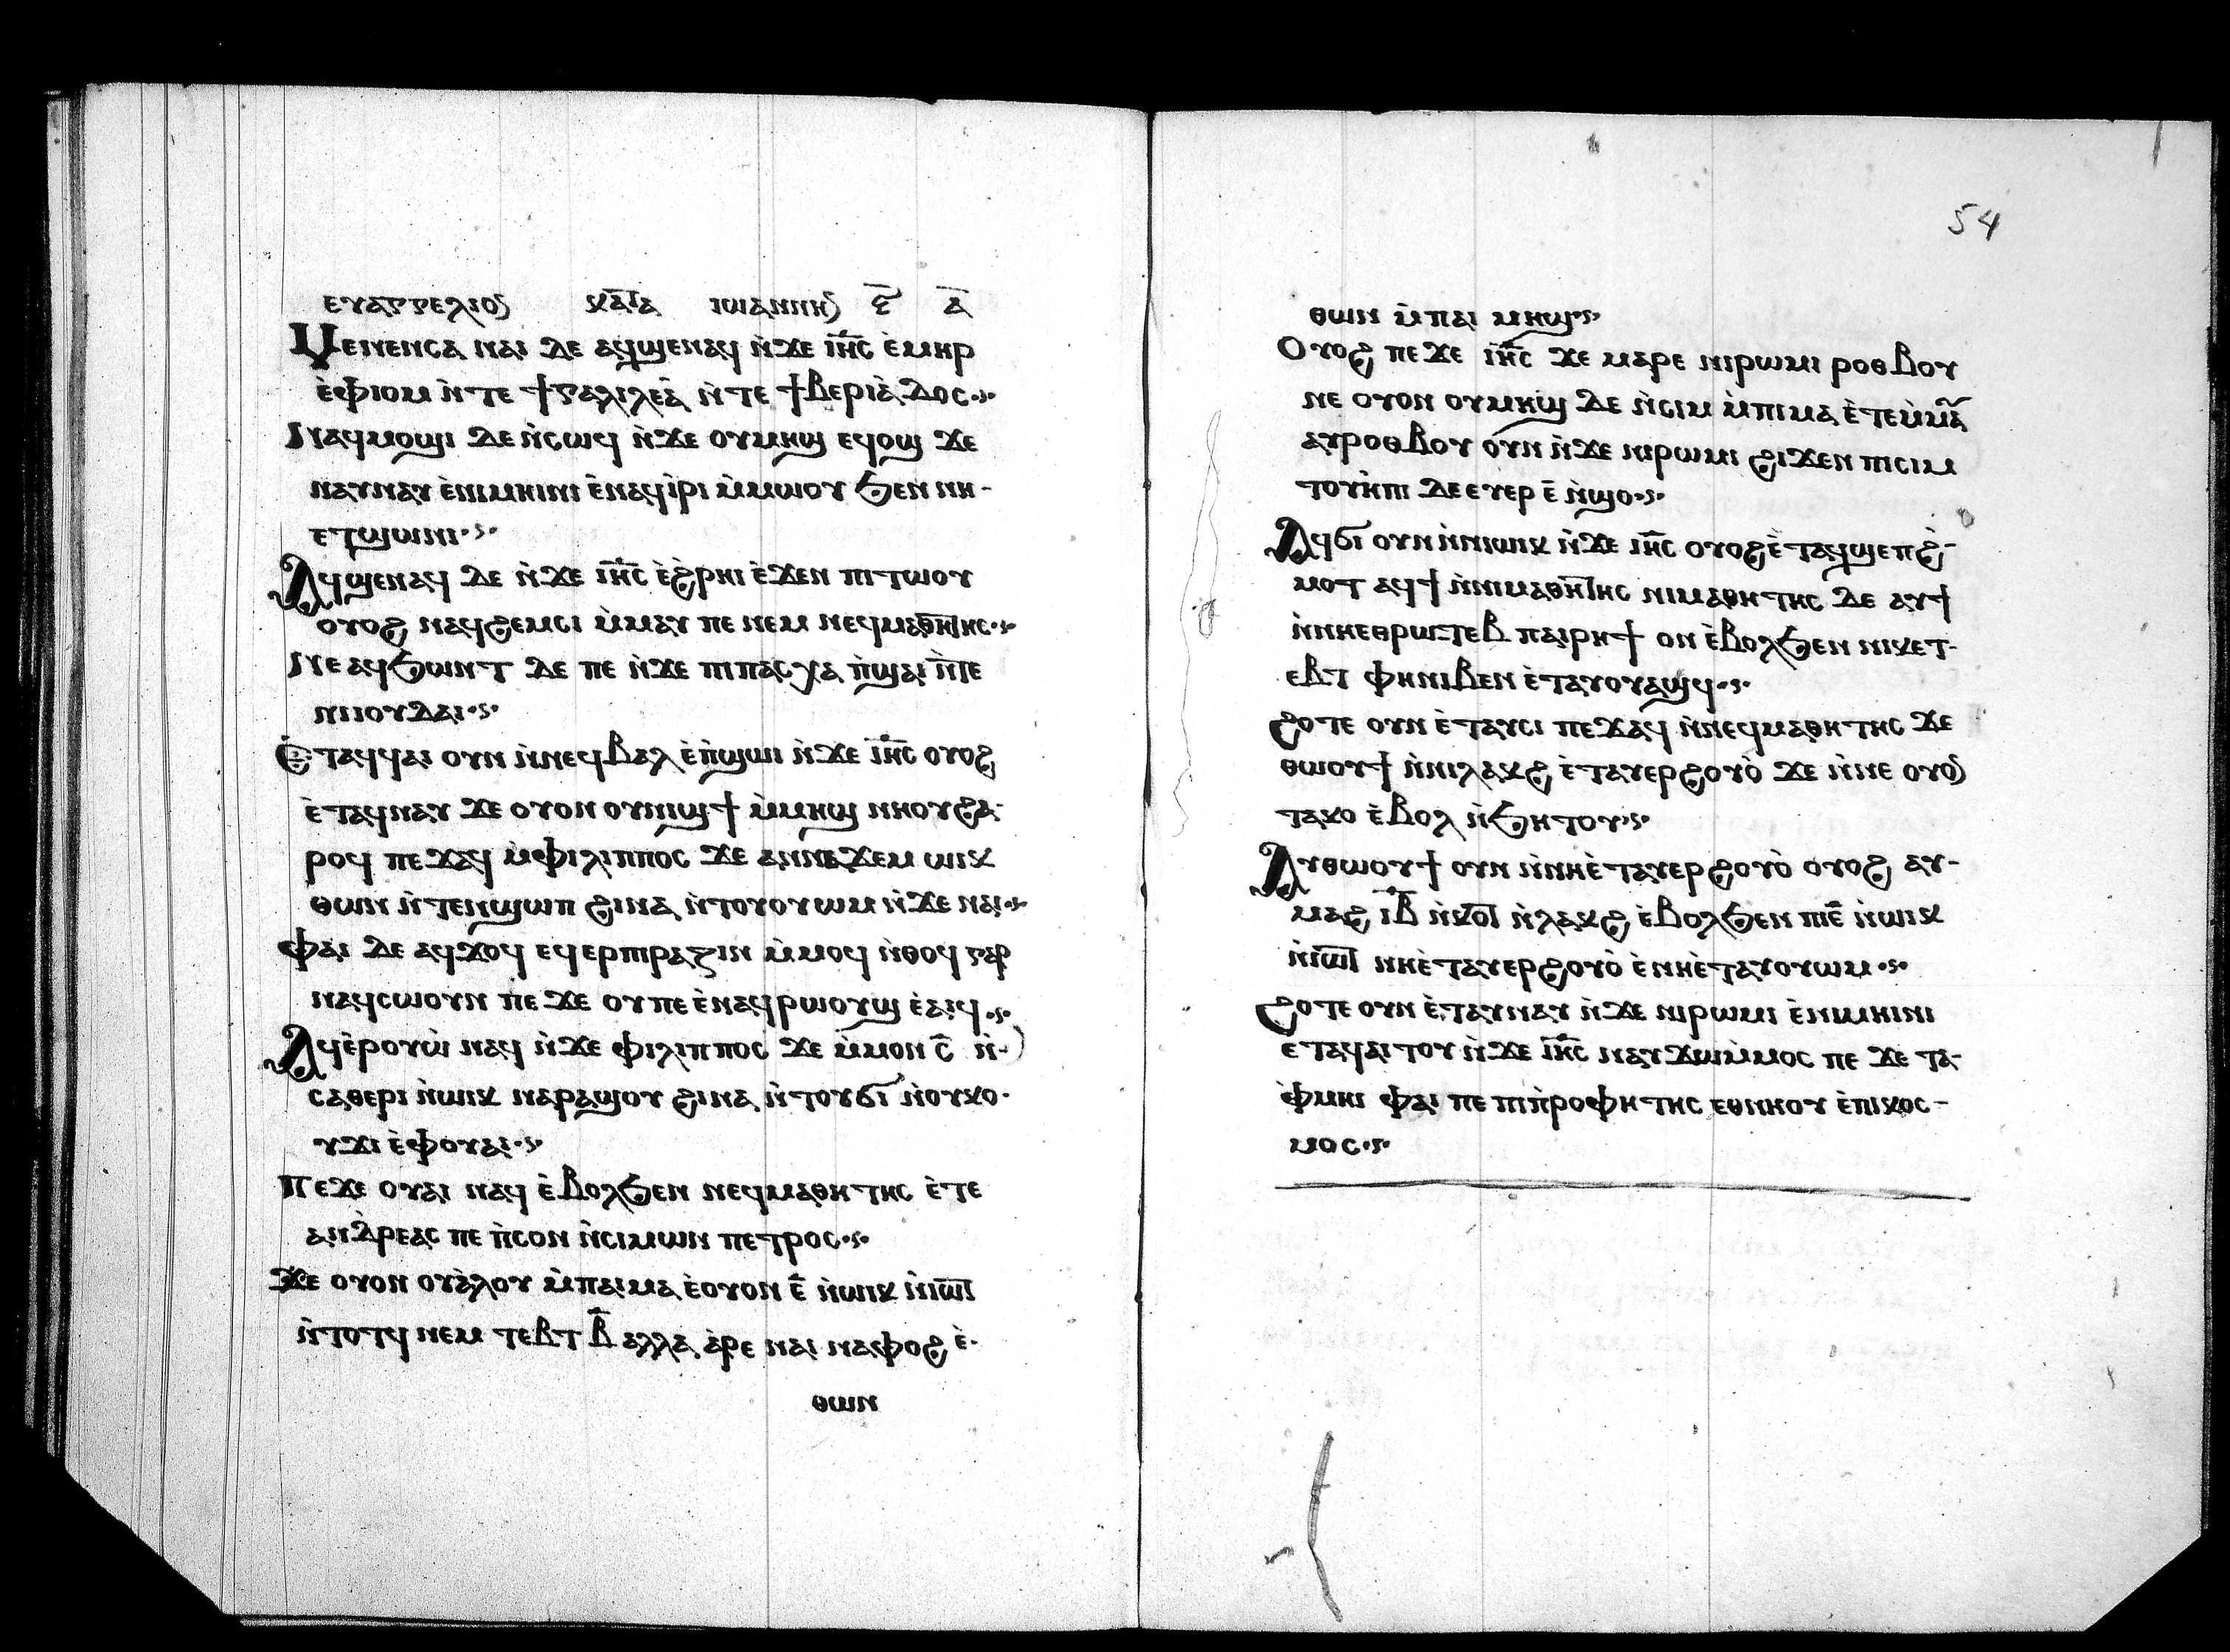 ⲉⲩⲁⲅⲅⲉⲗⲓⲟⲛ ⲕⲁⲧⲁ ⲓⲱⲁⲛⲛⲏⲛ ⲋ̅ ⲁ̅
Ⲙⲉⲛⲉⲛⲥⲁ ⲛⲁⲓ ⲇⲉ ⲁϥϣⲉⲛⲁϥ ⲛ̀ϫⲉ ⲓⲏ̅ⲥ̅ ⲉ̀ⲙⲏⲣ
ⲉ̀ⲫⲓⲟⲙ ⲛ̀ⲧⲉ ϯⲅⲁⲗⲓⲗⲉⲁ̀ ⲛ̀ⲧⲉ ϯⲃⲉⲣⲓⲁ̀ⲇⲟⲥ·ⲋ·
Ⲛⲁϥⲙⲟϣⲓ ⲇⲉ ⲛ̀ⲥⲱϥ ⲛ̀ϫⲉ ⲟⲩⲙⲏϣ ⲉϥⲟϣ ϫⲉ
ⲛⲁⲩⲛⲁⲩ ⲉ̀ⲛⲓⲙⲏⲓⲛⲓ ⲉ̀ⲛⲁϥⲓ̀ⲣⲓ ⲙ̀ⲙⲱⲟⲩ ϧⲉⲛ ⲛⲏ-
ⲉⲧϣⲱⲛⲓ·ⲋ·
Ⲁϥϣⲉⲛⲁϥ ⲇⲉ ⲛ̀ϫⲉ ⲓⲏ̅ⲥ̅ ⲉ̀ϩⲣⲏⲓ ⲉ̀ϫⲉⲛ ⲡⲓⲧⲱⲟⲩ
ⲟⲩⲟϩ ⲛⲁϥϩⲉⲙⲥⲓ ⲙ̀ⲙⲁⲩ ⲡⲉ ⲛⲉⲙ ⲛⲉϥⲙⲁⲑⲏⲧⲏⲥ·ⲋ·
Ⲛⲉ ⲁϥϧⲱⲛⲧ ⲇⲉ ⲡⲉ ⲛ̀ϫⲉ ⲡⲓⲡⲁⲥⲭⲁ ⲡ̀ϣⲁⲓ ⲛ̀ⲧⲉ
ⲛⲓⲓⲟⲩⲇⲁⲓ·ⲋ·
Ⲉ̀ⲧⲁϥϥⲁⲓ ⲟⲩⲛ ⲛ̀ⲛⲉϥⲃⲁⲗ ⲉ̀ⲡ̀ϣⲱⲓ ⲛ̀ϫⲉ ⲓⲏ̅ⲥ̅ ⲟⲩⲟϩ
ⲉ̀ⲧⲁϥⲛⲁⲩ ϫⲉ ⲟⲩⲟⲛ ⲟⲩⲛⲓϣϯ ⲙ̀ⲙⲏϣ ⲛⲏⲟⲩ ϩⲁ-
ⲣⲟϥ ⲡⲉϫⲁϥ ⲙ̀ⲫⲓⲗⲓⲡⲡⲟⲥ ϫⲉ ⲁⲛⲛⲁϫⲉⲙ ⲱⲓⲕ
ⲑⲱⲛ ⲛ̀ⲧⲉⲛϣⲱⲡ ϩⲓⲛⲁ ⲛ̀ⲧⲟⲩⲟⲩⲱⲙ ⲛ̀ϫⲉ ⲛⲁⲓ·ⲋ·
Ⲫⲁⲓ ⲇⲉ ⲁϥϫⲟϥ ⲉϥⲉⲣⲡⲓⲣⲁⲍⲓⲛ ⲙ̀ⲙⲟϥ ⲛ̀ⲑⲟϥ ⲅⲁⲣ
ⲛⲁϥⲥⲱⲟⲩⲛ ⲡⲉ ϫⲉ ⲟⲩ ⲡⲉ ⲉ̀ⲛⲁϥⲣⲱⲟⲩϣ ⲉ̀ⲁⲓϥ·ⲋ·
Ⲁϥⲉ̀ⲣⲟⲩⲱ̀ ⲛⲁϥ ⲛ̀ϫⲉ ⲫⲓⲗⲓⲡⲡⲟⲥ ϫⲉ ⲙ̀ⲙⲟⲛ ⲥ̅ ⲛ̀-
ⲥⲁⲑⲉⲣⲓ ⲛ̀ⲱⲓⲕ ⲛⲁⲣⲁϣⲟⲩ ϩⲓⲛⲁ ⲛ̀ⲧⲟⲩϭⲓ ⲛ̀ⲟⲩⲕⲟ-
ⲩϫⲓ ⲉ̀ⲫⲟⲩⲁⲓ·ⲋ·
Ⲡⲉϫⲉ ⲟⲩⲁⲓ ⲛⲁϥ ⲉ̀ⲃⲟⲗϧⲉⲛ ⲛⲉϥⲙⲁⲑⲏⲧⲏⲥ ⲉ̀ⲧⲉ
ⲁⲛⲇ̀ⲣⲉⲁⲥ ⲡⲉ ⲡ̀ⲥⲟⲛ ⲛ̀ⲥⲓⲙⲱⲛ ⲡⲉⲧⲣⲟⲥ·ⲋ·
Ϫⲉ ⲟⲩⲟⲛ ⲟⲩⲁ̀ⲗⲟⲩ ⲙ̀ⲡⲁⲓⲙⲁ ⲉ̀ⲟⲩⲟⲛ ⲉ̅ ⲛ̀ⲱⲓⲕ ⲛ̀ⲓⲱⲧ
ⲛ̀ⲧⲟⲧϥ ⲛⲉⲙ ⲧⲉⲃⲧ ⲃ̅ ⲁⲗⲗⲁ ⲁ̀ⲣⲉ ⲛⲁⲓ ⲛⲁⲫⲟϩ ⲉ̀-
ⲑⲱⲛ
54
ⲑⲱⲛ ⲙ̀ⲡⲁⲓ ⲙⲏϣ·ⲋ·
Ⲟⲩⲟϩ ⲡⲉϫⲉ ⲓⲏ̅ⲥ̅ ϫⲉ ⲙⲁⲣⲉ ⲛⲓⲣⲱⲙⲓ ⲣⲟⲑⲃⲟⲩ
ⲛⲉ ⲟⲩⲟⲛ ⲟⲩⲙⲏϣ ⲇⲉ ⲛ̀ⲥⲓⲙ ⲙ̀ⲡⲓⲙⲁ ⲉ̀ⲧⲉⲙ̀ⲙⲁ̅
ⲁⲩⲣⲟⲑⲃⲟⲩ ⲟⲩⲛ ⲛ̀ϫⲉ ⲛⲓⲣⲱⲙⲓ ϩⲓϫⲉⲛ ⲡⲓⲥⲓⲙ
ⲧⲟⲩⲏ̀ⲡⲓ ⲇⲉ ⲉⲩⲉⲣ ⲉ̅ ⲛ̀ϣⲟ·ⲋ·
Ⲁϥϭⲓ ⲟⲩⲛ ⲛ̀ⲛⲓⲱⲓⲕ ⲛ̀ϫⲉ ⲓⲏ̅ⲥ̅ ⲟⲩⲟϩ ⲉ̀ⲧⲁϥϣⲉⲡϩ̀-
ⲙⲟⲧ ⲁϥϯ ⲛ̀ⲛⲓⲙⲁⲑⲏⲧⲏⲥ ⲛⲓⲙⲁⲑⲏⲧⲏⲥ ⲇⲉ ⲁⲩϯ
ⲛ̀ⲛⲏⲉⲑⲣⲱⲧⲉⲃ ⲡⲁⲓⲣⲏϯ ⲟⲛ ⲉ̀ⲃⲟⲗϧⲉⲛ ⲛⲓⲕⲉⲧ-
ⲉⲃⲧ ⲫⲏ ⲛⲓⲃⲉⲛ ⲉ̀ⲧⲁⲩⲟⲩⲁϣϥ·ⲋ·
Ϩⲟⲧⲉ ⲟⲩⲛ ⲉ̀ⲧⲁⲩⲥⲓ ⲡⲉϫⲁϥ ⲛ̀ⲛⲉϥⲙⲁⲑⲏⲧⲏⲥ ϫⲉ
ⲑⲱⲟⲩϯ ⲛ̀ⲛⲓⲗⲁⲕϩ ⲉ̀ⲧⲁⲩⲉⲣϩⲟⲩⲟ̀ ϫⲉ ⲛ̀ⲛⲉ ⲟⲩⲟⲛ
ⲧⲁⲕⲟ ⲉ̀ⲃⲟⲗ ⲛ̀ϧⲏⲧⲟⲩ·ⲋ·
Ⲁⲩⲑⲱⲟⲩϯ ⲟⲩⲛ ⲛ̀ⲛⲏⲉ̀ⲧⲁⲩⲉⲣϩⲟⲩⲟ̀ ⲟⲩⲟϩ ⲁⲩ-
ⲙⲁϩ ⲓ̅ⲃ̅ ⲛ̀ⲕⲟⲧ ⲛ̀ⲗⲁⲕϩ ⲉ̀ⲃⲟⲗϧⲉⲛ ⲡⲓⲉ̅ ⲛ̀ⲱⲓⲕ
ⲛ̀ⲓⲱⲧ ⲛⲏⲉ̀ⲧⲁⲩⲉⲣϩⲟⲩⲟ̀ ⲉ̀ⲛⲏⲉ̀ⲧⲁⲩⲟⲩⲱⲙ·ⲋ·
Ϩⲟⲧⲉ ⲟⲩⲛ ⲉ̀ⲧⲁⲩⲛⲁⲩ ⲛ̀ϫⲉ ⲛⲓⲣⲱⲙⲓ ⲉ̀ⲛⲓⲙⲏⲓⲛⲓ
ⲉⲧⲁϥⲁⲓⲧⲟⲩ ⲛ̀ϫⲉ ⲓⲏ̅ⲥ̅ ⲛⲁⲩϫⲱⲙ̀ⲙⲟⲥ ⲡⲉ ϫⲉ ⲧⲁ-
ⲫ̀ⲙⲏⲓ ⲫⲁⲓ ⲡⲉ ⲡⲓⲡ̀ⲣⲟⲫⲏⲧⲏⲥ ⲉⲑⲛⲏⲟⲩ ⲉ̀ⲡⲓⲕⲟⲥ-
ⲙⲟⲥ·ⲋ·